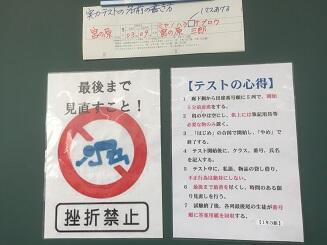 実力テストの名前の書き方
1マスあける
宮の原
03.09
ミヤノハラ□サブロウ
宮の原 三郎
最後まで
見直すこと!
挫折禁止
【テストの心得】
1 廊下側から出席番号順に8列で、開始
5分前着席をする。
2 机の中は空にし、机上には筆記用具等
必要な物のみ置く。
3 「はじめ」の合図で開始し、「やめ」で
終了する。
4 テスト開始後に、クラス、番号、氏名
を記入する。
5 テスト中に、私語、物品の貸し借り、
不正行為は絶対にしない。
6 最後まで最善を尽くし、時間のある限
り見直しを行う。
7 試験終了後、各列最後尾の生徒が番号
順に答案用紙を回収する。
【1年3組】